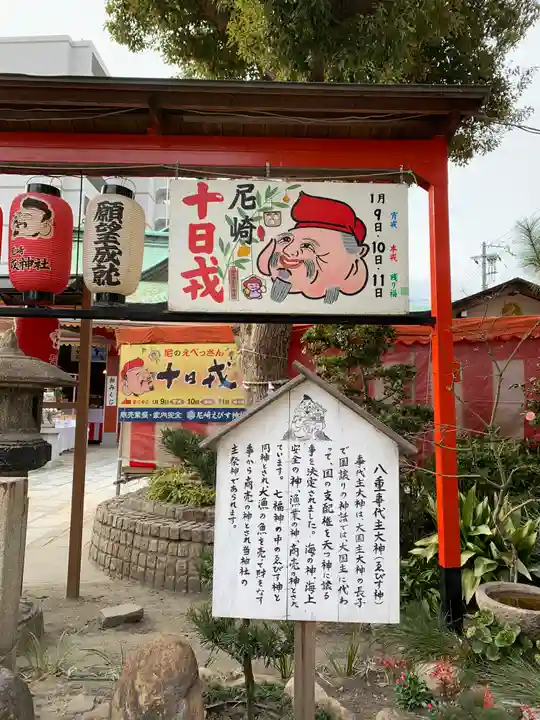 尼崎
十日戎
1月
9日・10日・11日
宵戎
本戎
残り福
願望成就
神社
尼のえべっさん
十日戎
1月9日 10日 11日
商売繁盛・家内安全
尼崎えびす神社
八重事代主大神(ゑびす神)
事代主大神は、大国主大神の長子
で国譲りの神話では、大国主に代わ
って、国の支配権を天つ神に譲る
事を決定されました。海の神、海上
安全の神、漁業の神、商売の神とさ
れています。七福神の中のゑびす神と
同神とされ、大漁の魚を売って財をなす
事から商売の神とされ当神社の
主祭神であられます。